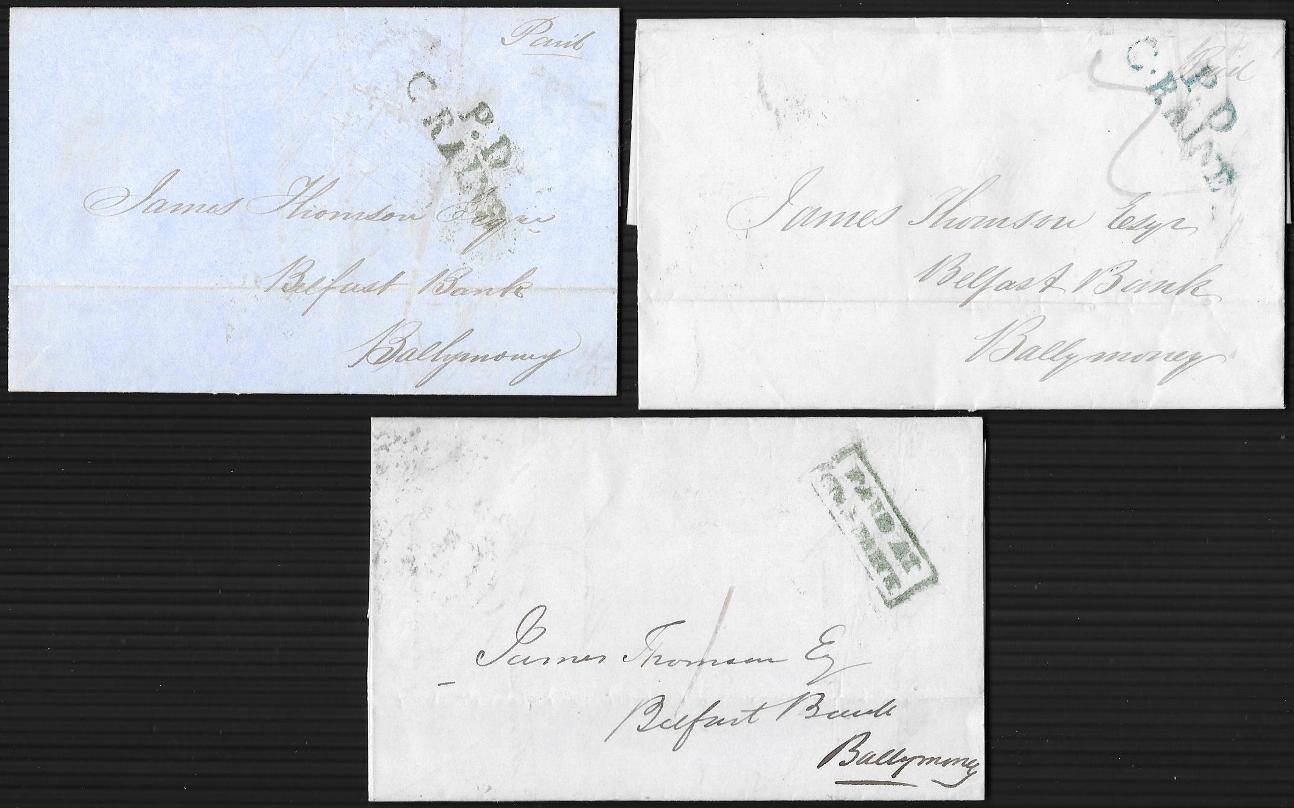 Paid
P.D
James Thomson Esqre
Belfast Bank
Ballymoney
Paid
P.D
C.RAIGE
James Thomson Esqr
Belfast Bank
Ballymoney
PAID AT
James Thomson Esq
Belfast Bank
Ballymoney